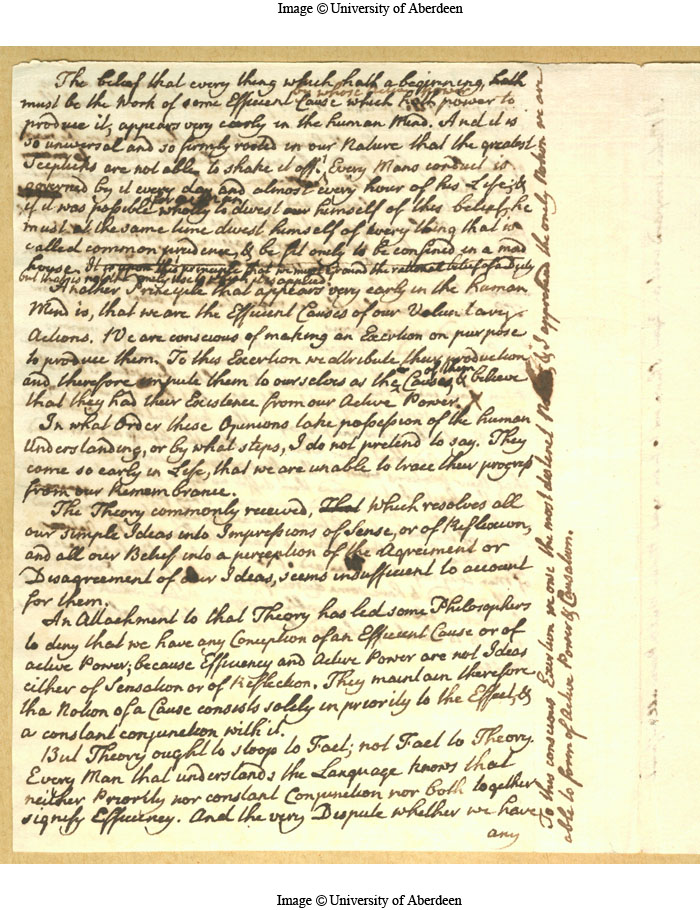 Image © University of Aberdeen
The belief that every thing which hath a beginning, hath
by whose active power
must be the work of some Efficient Cause which hath power to
produce it, appears very early in the human Mind. And it is
so universal and so firmly rooted in our Nature that the greatest
Scepticks are not able to shake it off. Every Mans conduct is
governed by it every day and almost every hour of his Life; &
if it was possible wholly to divest himself of this belief, he
must at the same time divest himself of every thing that is
called common prudence, & be fit onely to be confined in a mad
house. It is upon this principle that we must ground the rational belief of a Deity
but that is
Another Principle that appears very early in the human
Mind is, that we are the Efficient Causes of our Voluntary
Actions. We are conscious of making an Exertion on purpose
to produce them. To this Exertion we attribute their production
of them
and therefore impute them to ourselves as the Causes & believe
that they had their Existence from our Active Power. X
In what Order these Opinions take possession of the human
Understanding, or by what steps, I do not pretend to say. They
come so early in Life, that we are unable to trace their progress
from our Remembrance.
The Theory commonly received, That which resolves all
our simple Ideas into Impressions of Sense, or of Reflexion,
and all our Belief into a perception of the Agreement or
Disagreement of our Ideas, seems insufficient to account
for them.
An Attachment to that Theory has led some Philosophers
to deny that we have any Conception of an Efficient Cause or of
active Power; because Efficiency and Active Power are not Ideas
either of Sensation or of Reflection. They maintain therefore
tha Notion of a Cause consists solely in priority to the Effect, &
a constant conjunction with it.
But Theory ought to stoop to Fact; not Fact to Theory.
Every Man that understands the Language knows that
neither Priority nor constant Conjunction nor both together
signify Efficiency. And the very Dispute whether we have
any
To this conscious Exertion we owe the most distinct & I apprehend the onely Notion we are
able to form of Active Power & Causation.
Image © University of Aberdeen